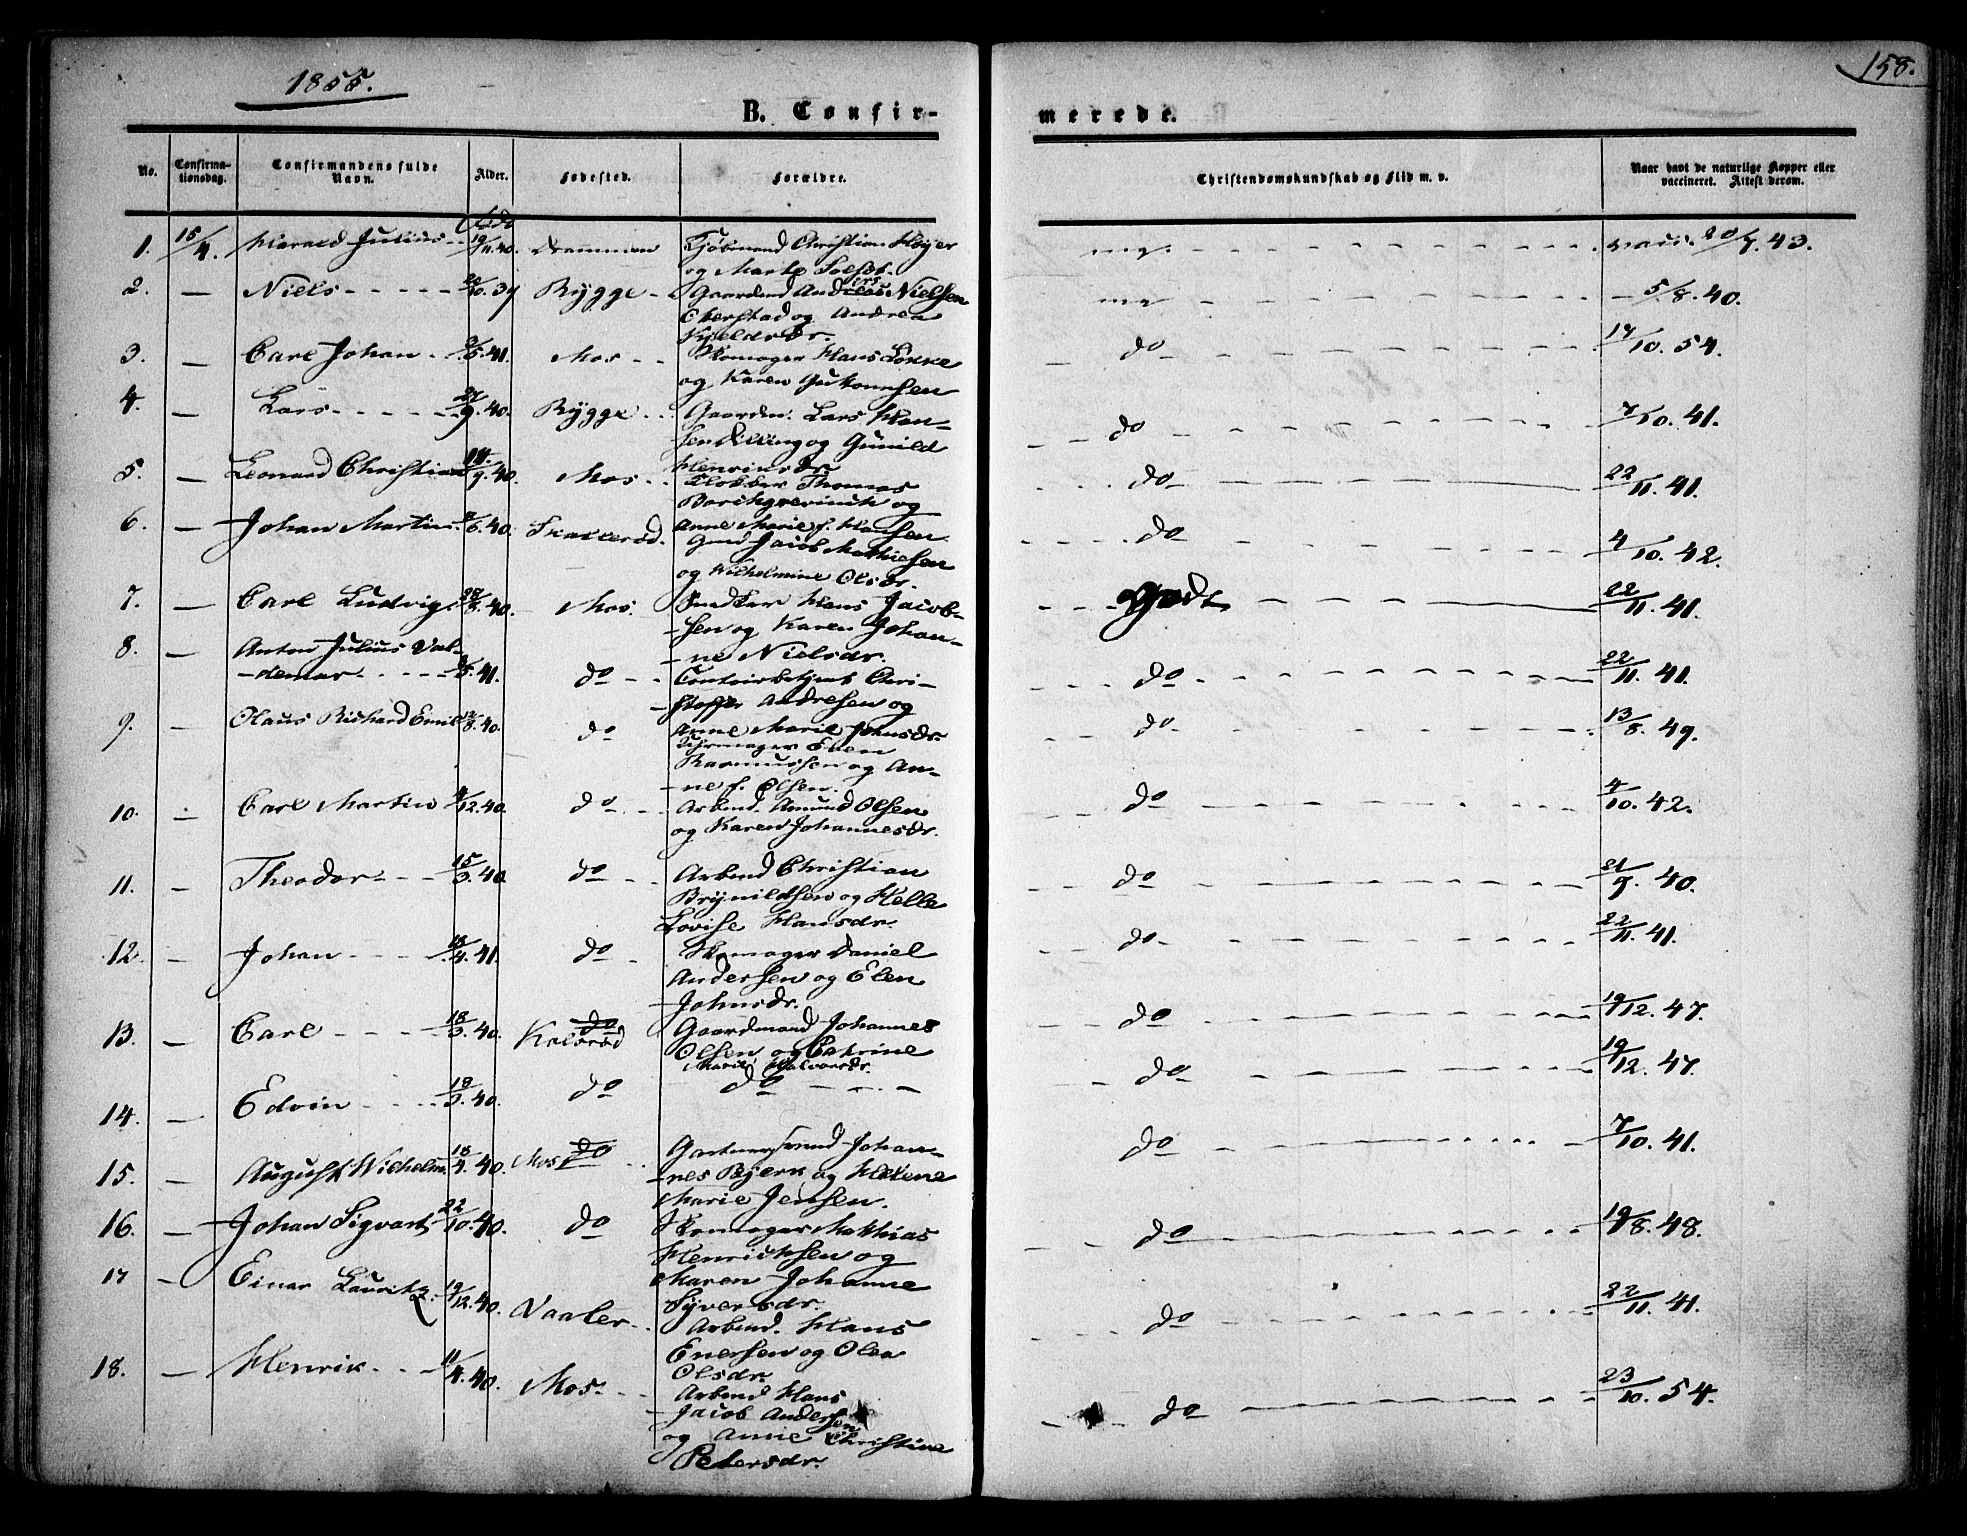 1855.
158.
B. Confir-
merede.
No.
Confirma-
tionsdag.
Confirmandens fulde
Navn.
Alder.
Fødested.
Forældre.
Christendomskundskab og Flid m. v.
Naar havt de naturlige Kopper eller
vaccineret. Attest derom.
1. 15/4. Harald Julius 19/11.40. Drammen Kjøbmand Christian Høyer mg. vacc. 20/7.43.
og Marte Solhol.
2. — Niels 20/10.39 Rygge Gaardmd Anders Nielsen mg 5/8.40.
Ekerstad og Andrea
Kjeldsdr.
3. Carl Johan /5.41. Mos Skomager Hans Løkke do 17/10.54.
og Karen Gulbransen
4. — Lars 27/9.40. Rygge Gaardm. Lars Han- do 7/10.41.
sen Dilling og Gunild
Henriksdr.
5. — Leonard Christian 18/9.40. Mos Klokker Thomas do 22/11.41.
Borchgrevinck og
Anne Marie f. Hansen
6. — Johan Martin /6.40. Skallerød Gmd Jacob Mathiesen do 4/10.42.
og Wilhelmine Olsdr.
7. — Carl Ludvig 28/8.40. Mos. Snedker Hans Jacob- Godt 22/11.41.
sen og Karen Johan-
ne Nielsdr.
8. — Anton Julius Val-
demar /5.41. do Contoirbetjent Chri- do 22/11.41.
stoffer Andresen og
Anne Marie Johnsdr.
9. — Olaus Richard Emil /8.40. do Uhrmager Even do 13/8.49.
Rasmussen og An-
ne f. Olsen.
10. — Carl Martin /12.40. do Arbmd. Amund Olsen do 4/10.42.
og Karen Johannesdr.
11. — Theodor 15/3.40 do Arbmd Christian do 21/9.40.
Brynildsen og Helle
Lovise Hansdr.
12. — Johan 18/4.41. do Skomager Daniel do 22/11.41.
Andersen og Elen
Johnsdr.
13. — Carl 18/3.40. do Kolsrød Gaardmand Johannes do 19/12.47.
Olsen og Catrine
Marie Halvorsdr.
14. — Edvin 18/3.40. do do do 19/12.47.
15. — August Wilhelm 18/4.40. Mos do Gartnersvend Johan- do 7/10.41.
nes Bjerk og Helene
Marie Jensen.
16. — Johan Sigvart 22/10.40. do Skomager Mathias do 19/8.48.
Henrichsen og
Maren Johanne
Syversdr.
17 — Einar Lauritz 19/12.40. Vaaler Arbmd. Hans do 22/11.41.
Enersen og Olea
Olsdr.
18. — Henrik 11/4.40. Mos Arbmd Hans do 23/10.54.
Jacob Andersen
og Anne Christine
Petersdr.